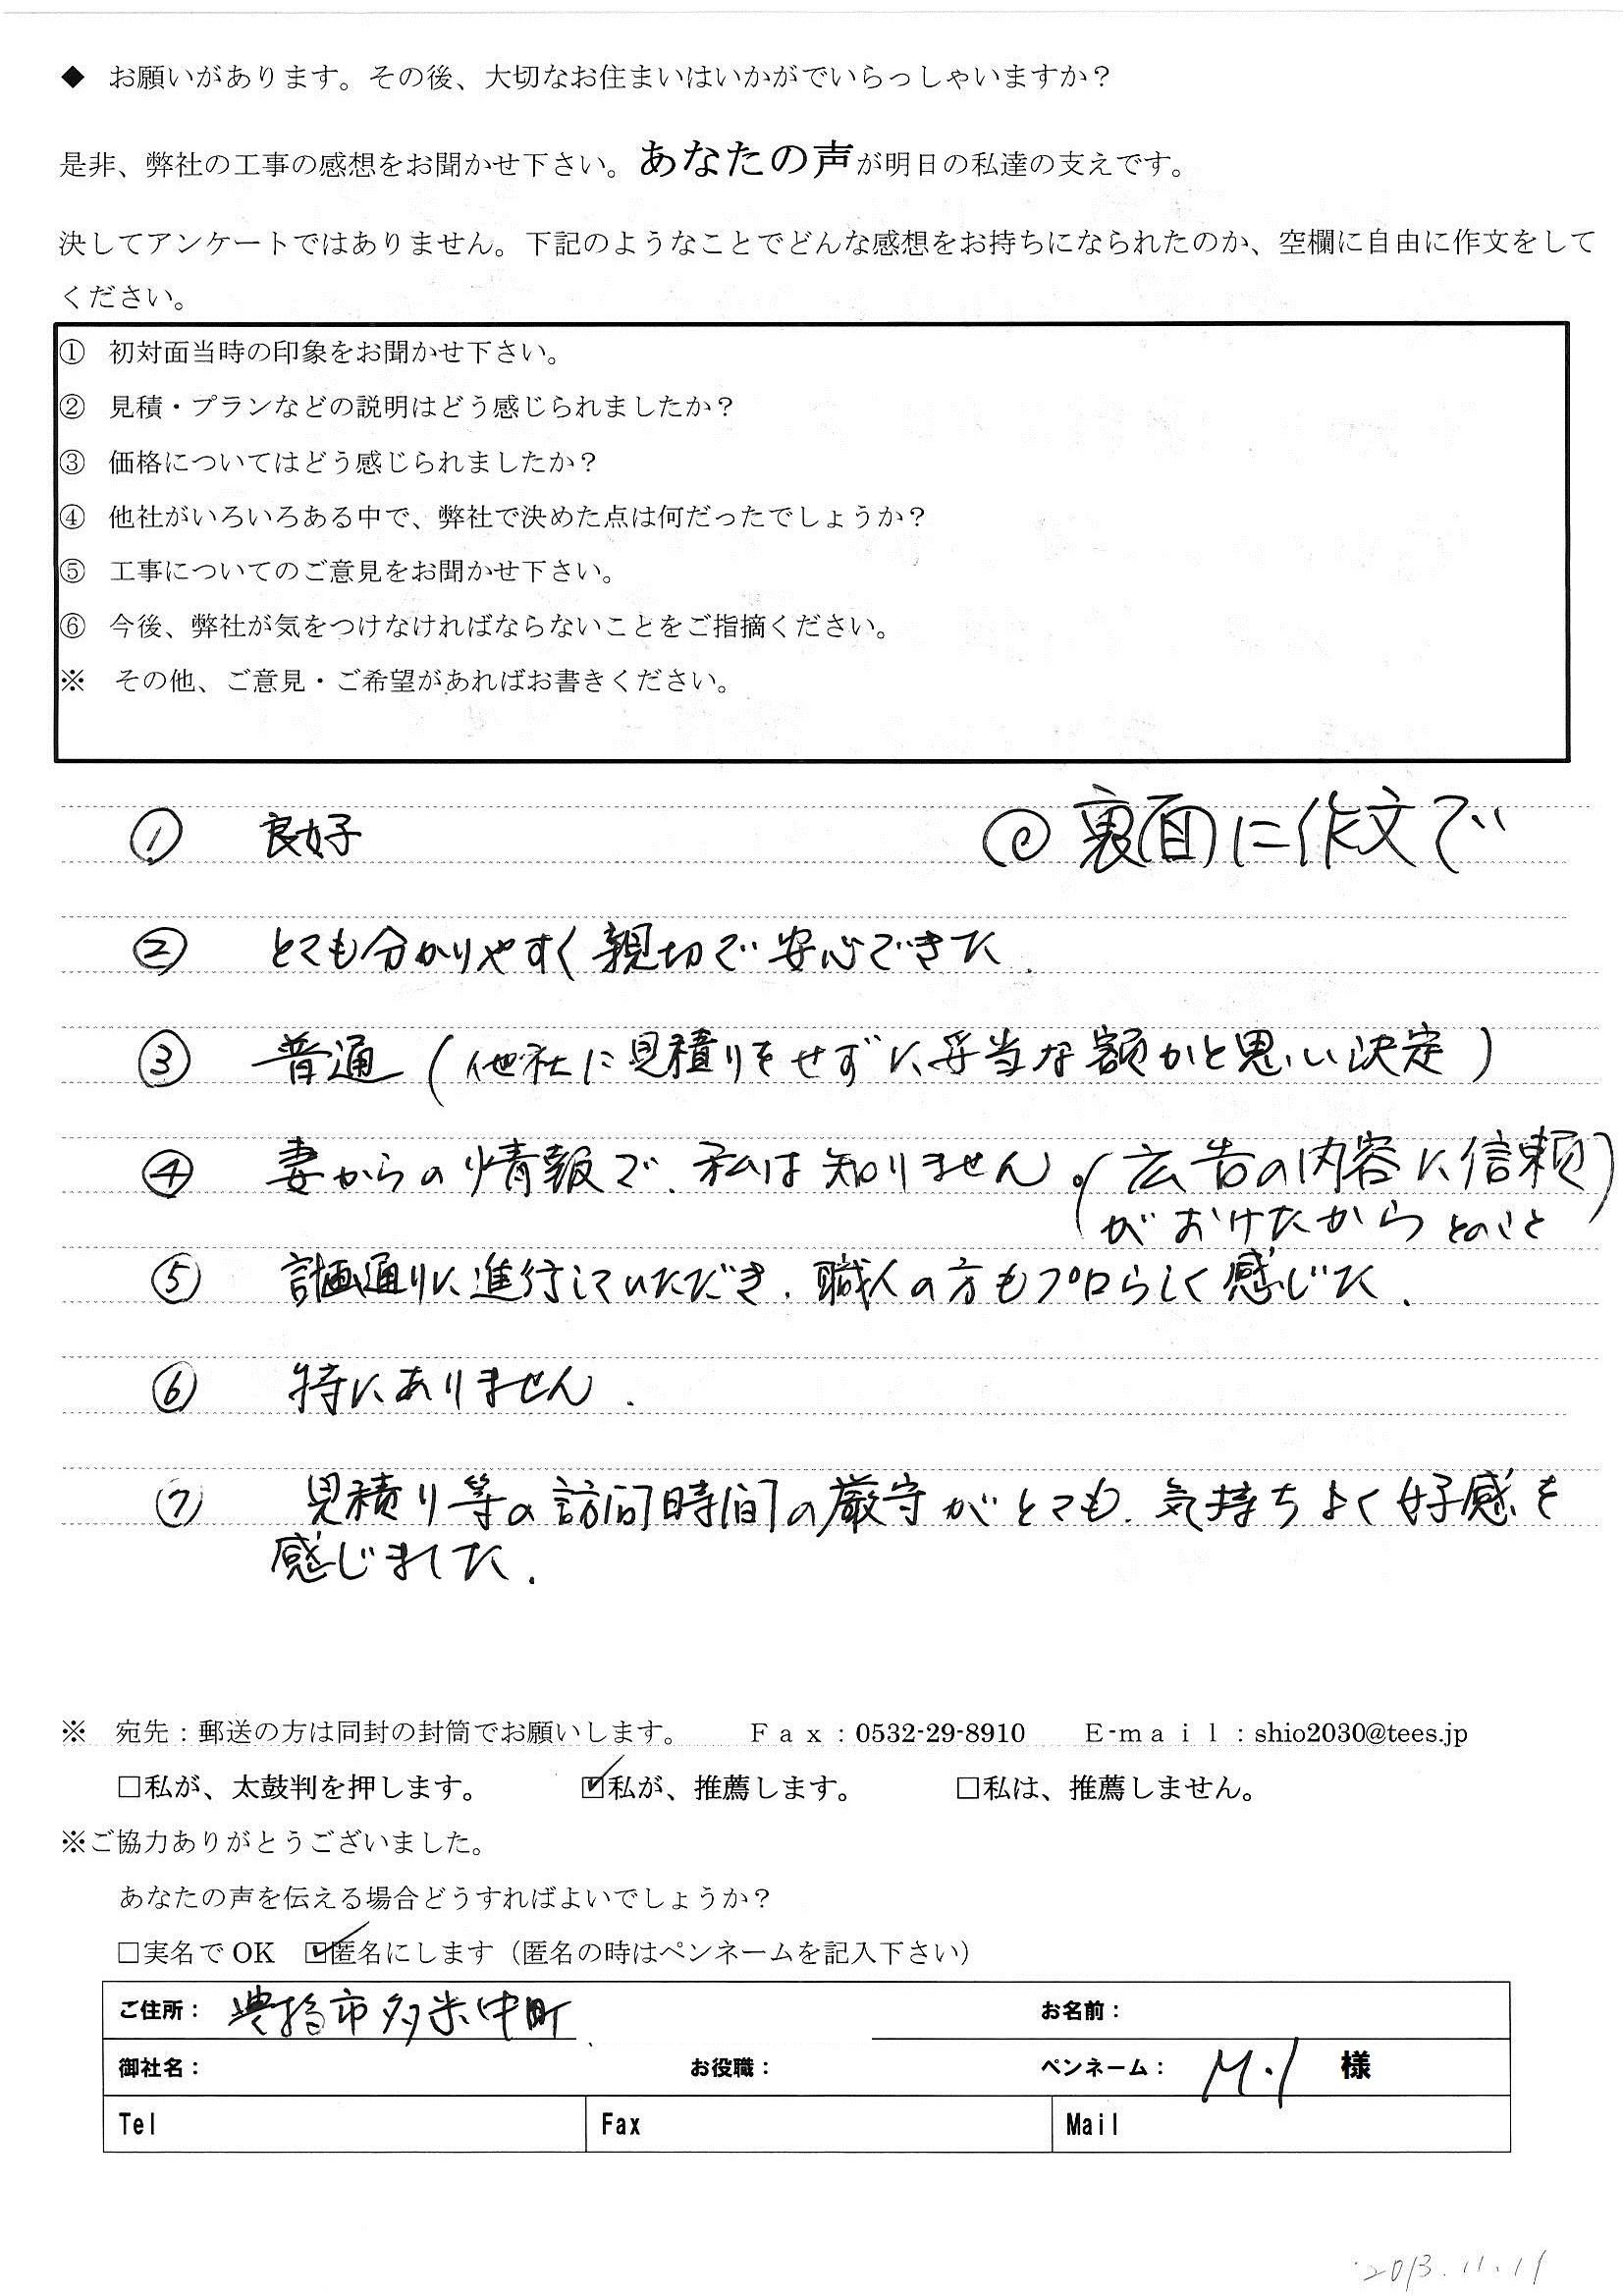 ◆ お願いがあります。その後、大切なお住まいはいかがでいらっしゃいますか？
是非、弊社の工事の感想をお聞かせ下さい。あなたの声が明日の私達の支えです。
決してアンケートではありません。下記のようなことでどんな感想をお持ちになられたのか、空欄に自由に作文をして
ください。
① 初対面当時の印象をお聞かせ下さい。
② 見積・プランなどの説明はどう感じられましたか？
③ 価格についてはどう感じられましたか？
④ 他社がいろいろある中で、弊社で決めた点は何だったでしょうか？
⑤ 工事についてのご意見をお聞かせ下さい。
⑥ 今後、弊社が気をつけなければならないことをご指摘ください。
※ その他、ご意見・ご希望があればお書きください。
① 良好 裏面に作文で
② とても分かりやすく親切で安心できた.
③ 普通（他社に見積りをせずに、妥当な額かと思い決定）
④ 妻からの情報で、私は知りません。（広告の内容に信頼
がおけたから とのこと）
⑤ 計画通りに進行していただき、職人の方もプロらしく感じた.
⑥ 特にありません.
⑦ 見積り等の訪問時間の厳守がとても、気持ちよく好感を
感じました.
※ 宛先：郵送の方は同封の封筒でお願いします。 Ｆａｘ：0532-29-8910 Ｅ-ｍａｉｌ：shio2030@tees.jp
□私が、太鼓判を押します。 ☑私が、推薦します。 □私は、推薦しません。
※ご協力ありがとうございました。
あなたの声を伝える場合どうすればよいでしょうか？
□実名で OK ☑匿名にします（匿名の時はペンネームを記入下さい）
ご住所： 豊橋市多米中町 お名前：
御社名： お役職： ペンネーム： M.I 様
Tel Fax Mail
2013.11.11